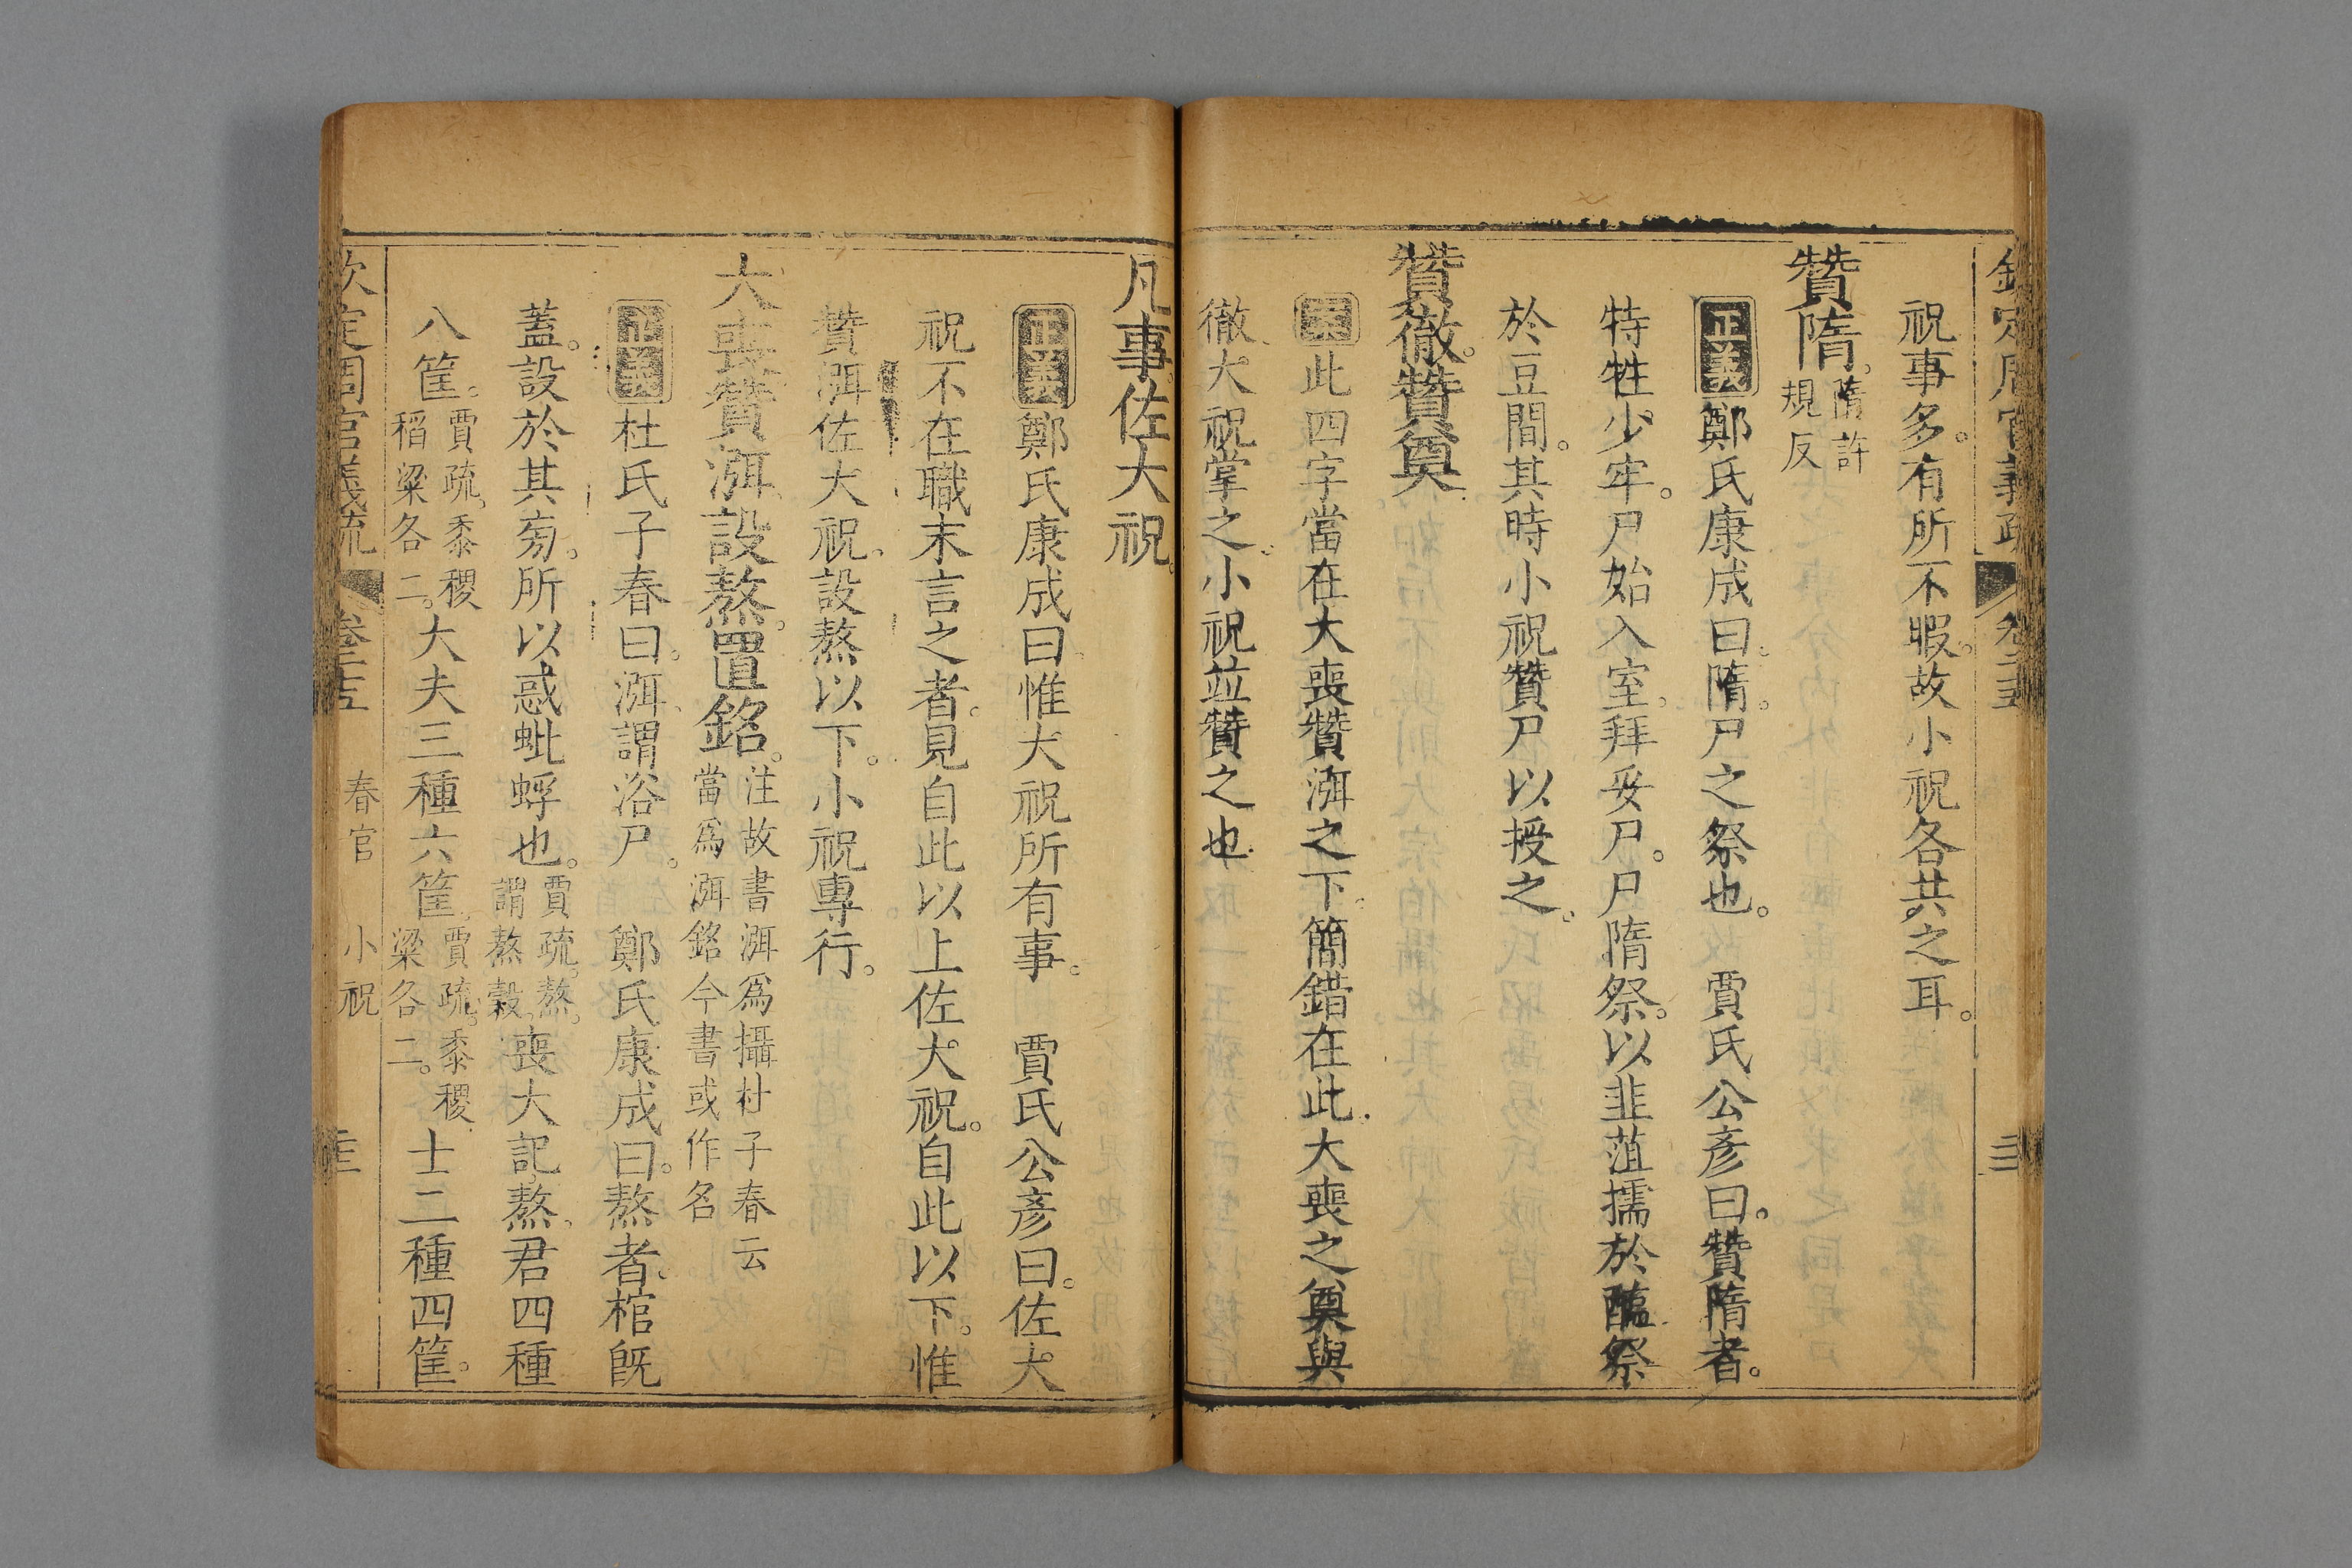 欽定周官義疏 卷二十五
祝事多。有所不暇。故小祝各共之耳。
贊隋。隋許規反
正義 鄭氏康成曰。隋。尸之祭也。 賈氏公彥曰。贊隋者。
特牲少牢。尸始入室。拜妥尸。尸隋祭。以韭菹擩於醢。祭
於豆間。其時小祝贊尸以授之。
贊徹。贊奠。
案 此四字當在大喪贊渳之下。簡錯在此。大喪之奠與
徹。大祝掌之。小祝並贊之也。
凡事佐大祝。
正義 鄭氏康成曰。惟大祝所有事。 賈氏公彥曰。佐大
祝不在職末言之者。見自此以上佐大祝。自此以下。惟
贊渳佐大祝。設熬以下。小祝專行。
大喪贊渳。設熬。置銘。注故書渳爲攝杜子春云當爲渳銘今書或作名
正義 杜氏子春曰。渳。謂浴尸。 鄭氏康成曰。熬者。棺旣
蓋。設於其旁。所以惑蚍蜉也。賈疏。熬。謂熬穀。喪大記。熬。君四種
八筐。賈疏。黍稷稻粱各二。大夫三種六筐。賈疏。黍稷粱各二。士二種四筐。
欽定周官義疏 卷二十五 春官 小祝